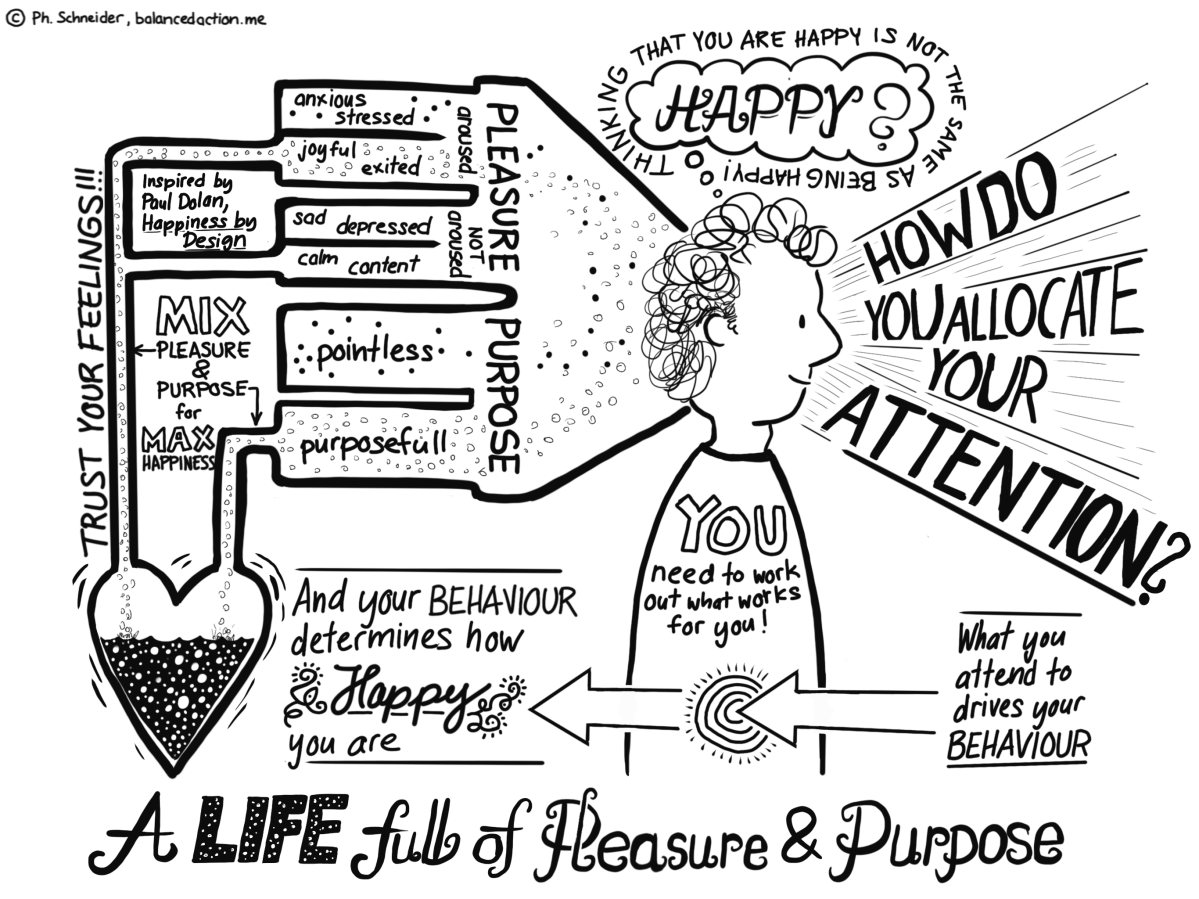 © Ph. Schneider, balancedaction.me
THINKING THAT YOU ARE HAPPY IS NOT THE SAME AS BEING HAPPY!
HAPPY?
HOW DO
YOU ALLOCATE
YOUR
ATTENTION?
TRUST YOUR FEELINGS!!!
anxious
stressed
joyful
exited
aroused
sad
depressed
calm content
NOT
aroused
PLEASURE
pointless
purposefull
PURPOSE
Inspired by
Paul Dolan,
Happiness by
Design
MIX
PLEASURE
&
PURPOSE
for
MAX
HAPPINESS
YOU
need to work
out what works
for you!
What you
attend to
drives your
BEHAVIOUR
And your BEHAVIOUR
determines how
Happy
you are
A LIFE full of Pleasure & Purpose